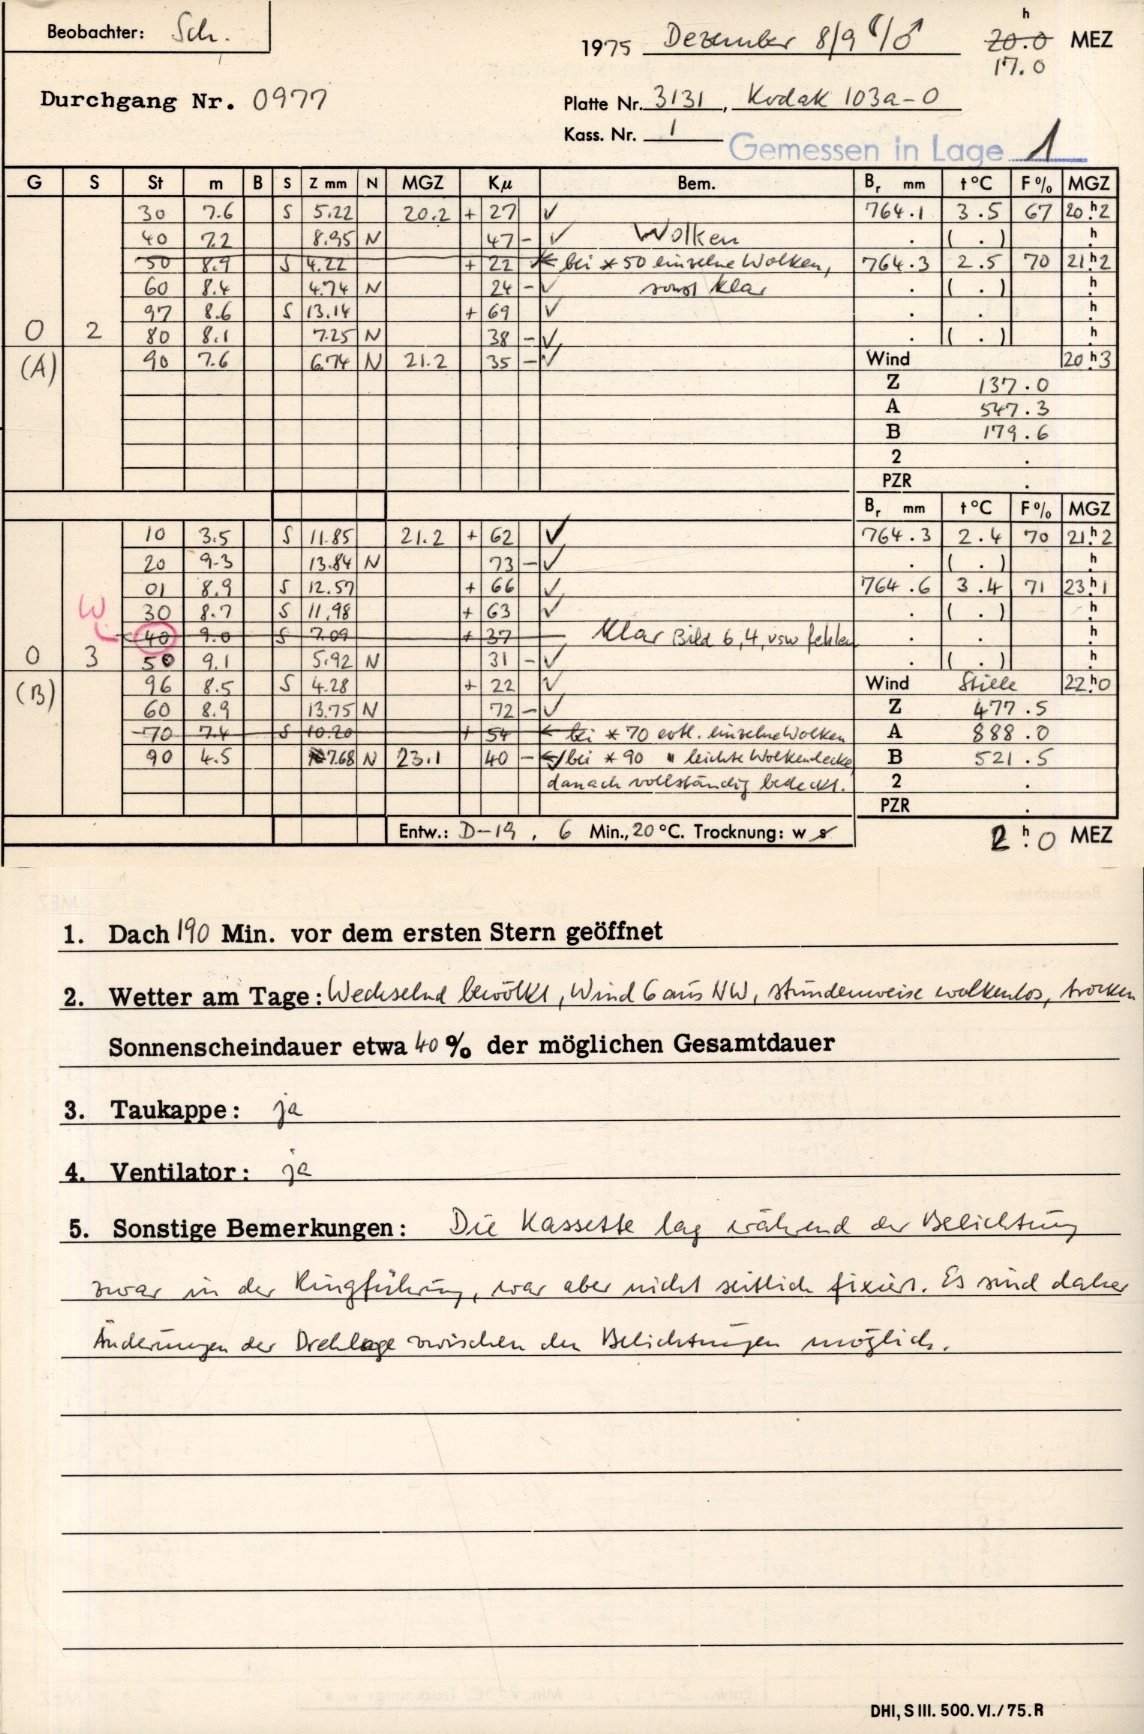 Beobachter: Sch.
1975 Dezember 8/9 ☾/♂ 20.0 h MEZ
17.0
Durchgang Nr. 0977
Platte Nr. 3131, Kodak 103a-O
Kass. Nr. 1
Gemessen in Lage 1
G S St m B S Z mm N MGZ Kµ Bem. Br mm t°C F% MGZ
30 7.6 S 5.22 20.2 + 27 ✓ 764.1 3.5 67 20h2
40 7.2 8.95 N 47 - ✓ Wolken . ( . ) h
50 8.9 S 4.22 + 22 ← bei * 50 einzelne Wolken, 764.3 2.5 70 21h2
60 8.4 4.74 N 24 - ✓ sonst klar . ( . ) h
97 8.6 S 13.14 + 69 ✓ . . h
0 2 80 8.1 7.25 N 38 - ✓ . ( . ) h
(A) 90 7.6 6.74 N 21.2 35 - ✓ Wind 20h3
Z 137.0
A 547.3
B 179.6
2 .
PZR .
Br mm t°C F% MGZ
10 3.5 S 11.85 21.2 + 62 ✓ 764.3 2.4 70 21h2
20 9.3 13.84 N 73 - ✓ . ( . ) h
01 8.9 S 12.57 + 66 ✓ 764.6 3.4 71 23h1
W 30 8.7 S 11.98 + 63 ✓ . ( . ) h
40 9.0 S 7.09 + 37 klar Bild 6,4, usw fehlen . . h
0 3 50 9.1 5.92 N 31 - ✓ . ( . ) h
(B) 96 8.5 S 4.28 + 22 ✓ Wind Stille 22h0
60 8.9 13.75 N 72 - ✓ Z 477.5
70 7.4 S 10.20 + 54 ← bei * 70 evtl. einzelne Wolken A 888.0
90 4.5 7.68 N 23.1 40 - ✓ bei * 90 " leichte Wolkendecke B 521.5
danach vollständig bedeckt. 2 .
PZR .
Entw.: D-19, 6 Min., 20 °C. Trocknung: w s 2h.0 MEZ
1. Dach 190 Min. vor dem ersten Stern geöffnet
2. Wetter am Tage: Wechselnd bewölkt, Wind 6 aus NW, stundenweise wolkenlos, trocken
Sonnenscheindauer etwa 40 % der möglichen Gesamtdauer
3. Taukappe: ja
4. Ventilator: ja
5. Sonstige Bemerkungen: Die Kassette lag während der Belichtung
zwar in der Ringführung, war aber nicht seitlich fixiert. Es sind daher
Änderungen der Drehlage zwischen den Belichtungen möglich.
DHI, S III. 500. VI./75. R